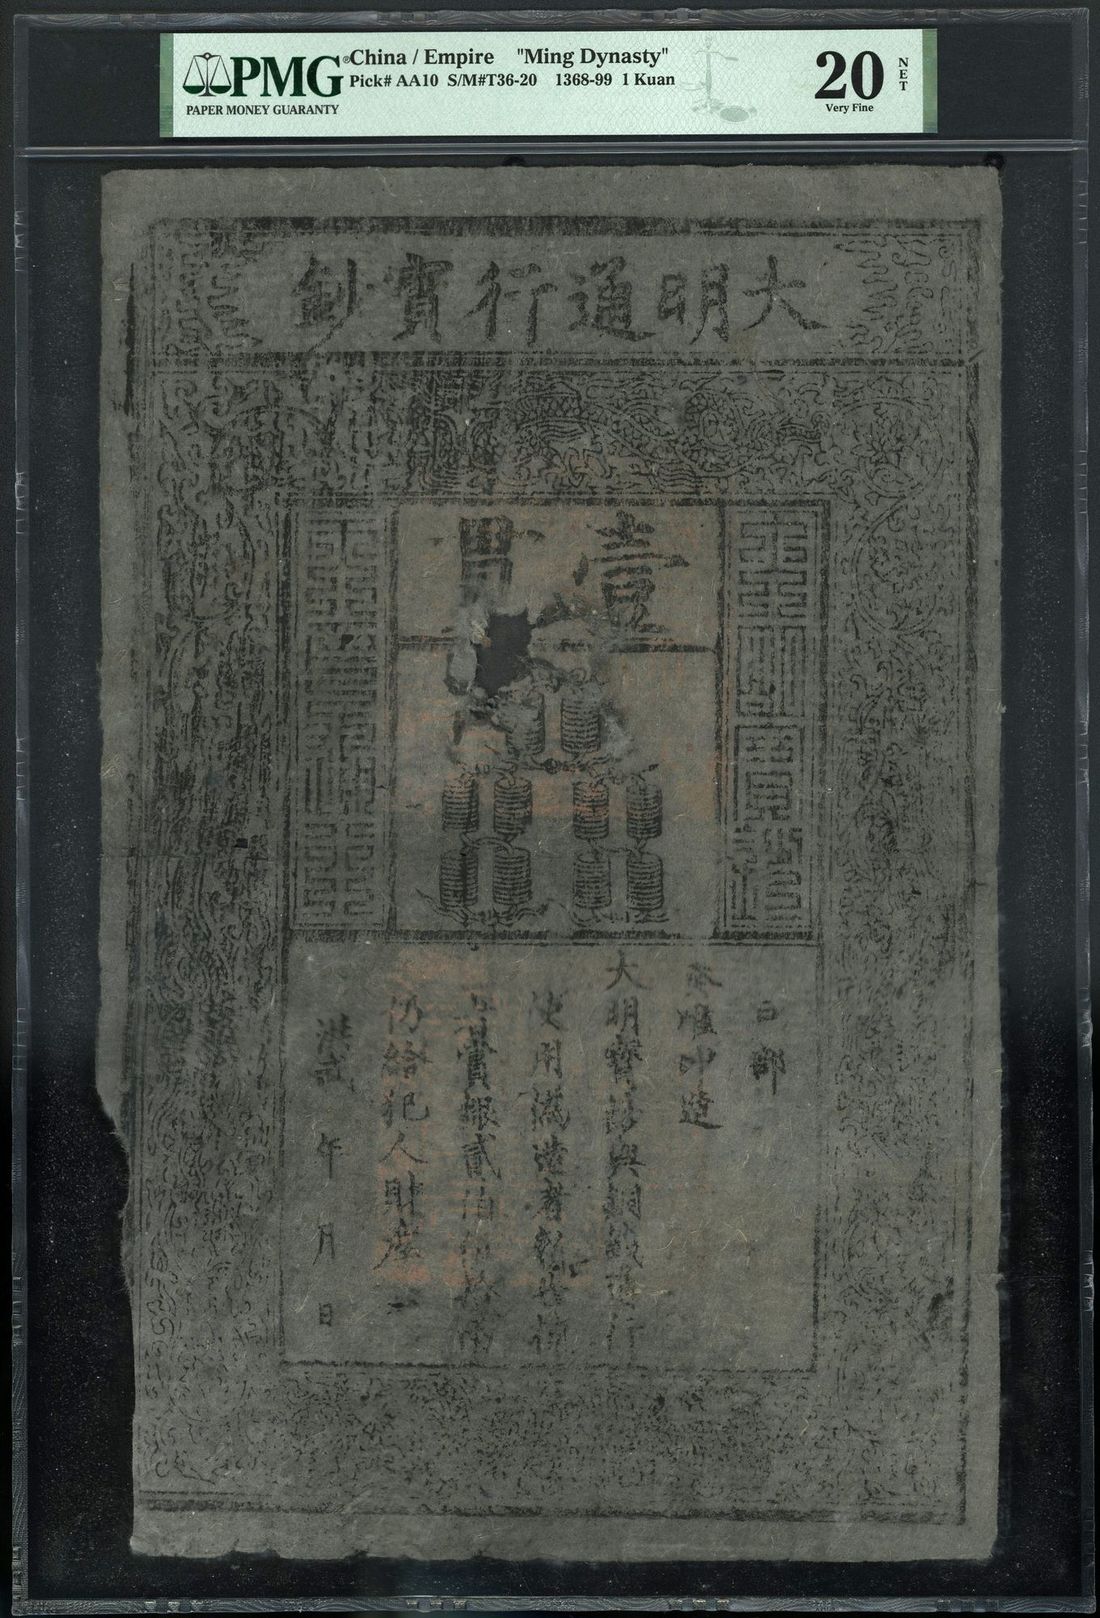 PMG® China / Empire "Ming Dynasty"
PAPER MONEY GUARANTY
Pick# AA10 S/M#T36-20 1368-99 1 Kuan
20 NET
Very Fine
大明通行寶鈔
壹貫
大明寶鈔
天下通行
戶部
奏准印造
大明寶鈔與銅錢通行
使用偽造者斬告捕
者賞銀貳伯伍拾兩
仍給犯人財產
洪武 年 月 日